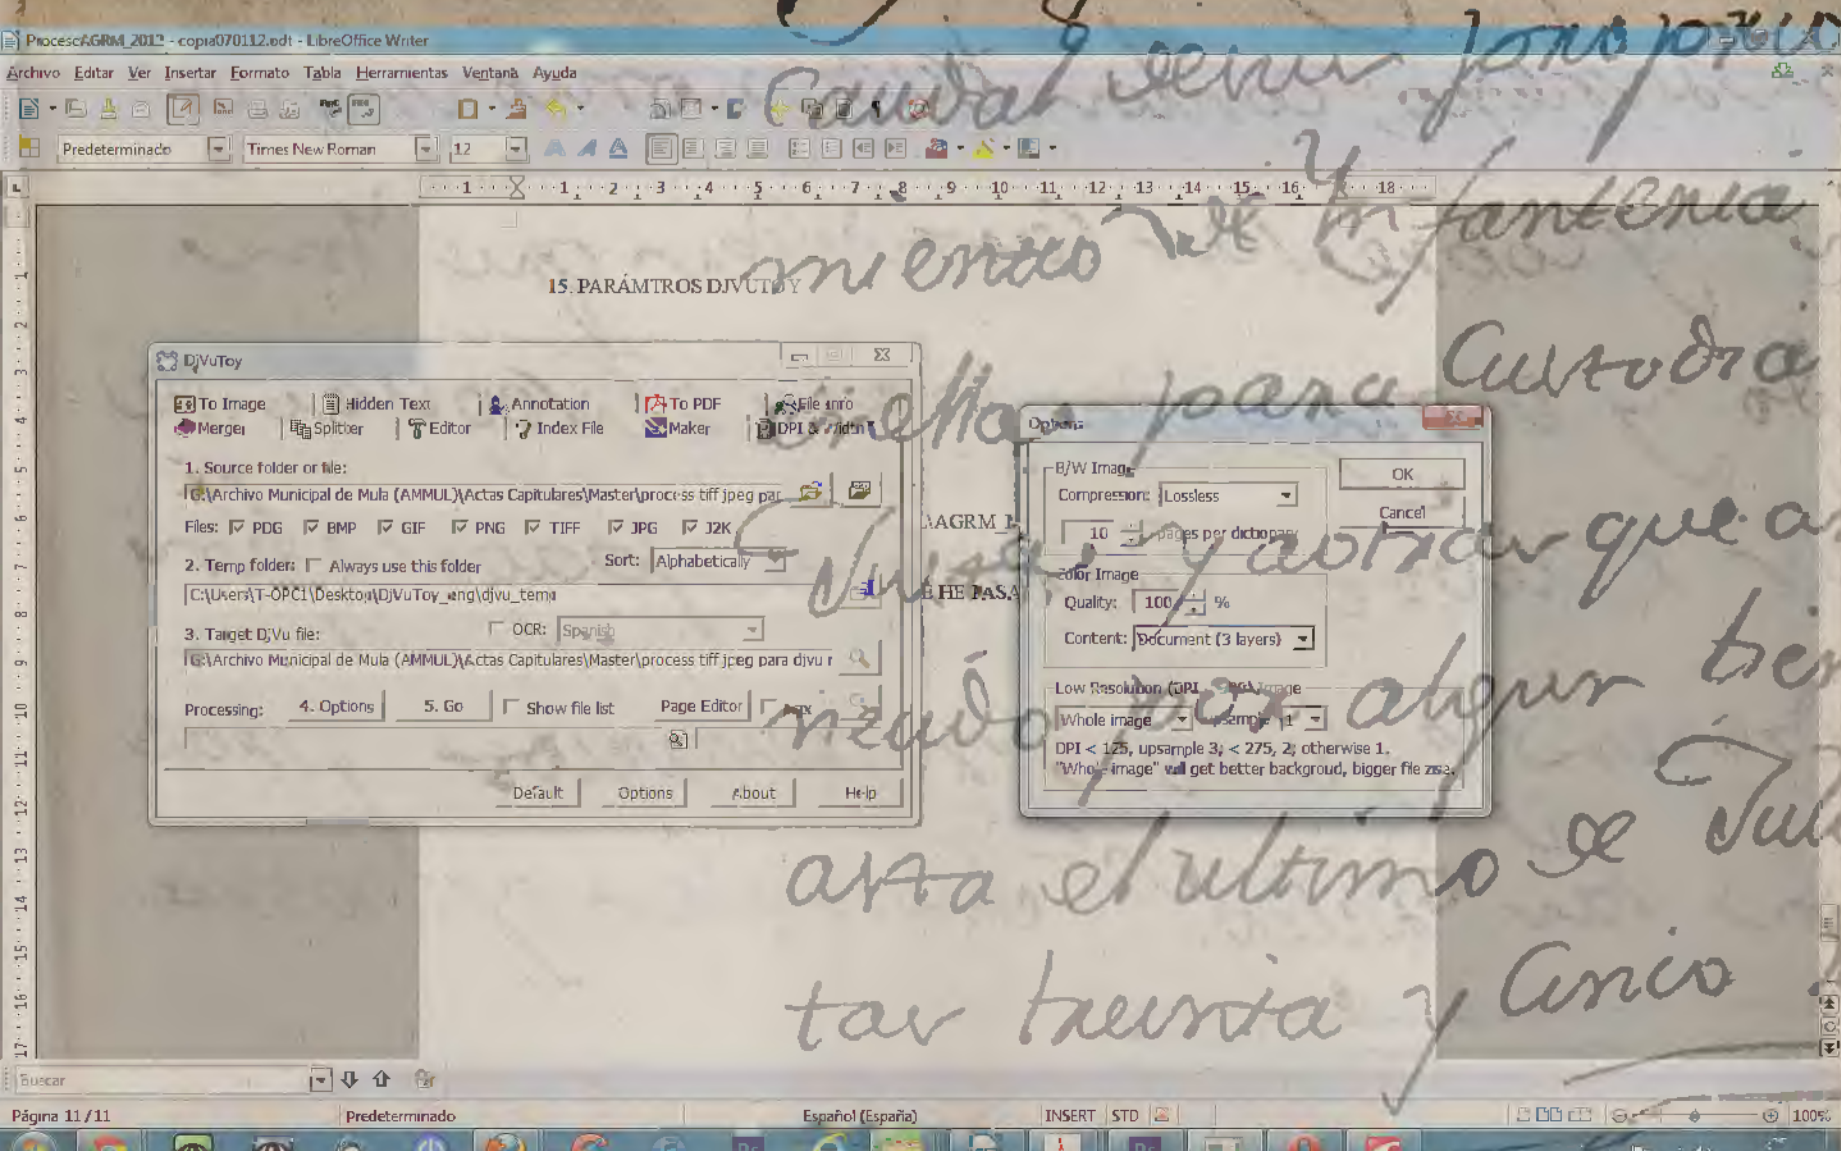 ProcescAGRM_2012 - copia070112.odt - LibreOffice Writer
Archivo Editar Ver Insertar Formato Tabla Herramientas Ventana Ayuda
Predeterminado Times New Roman 12
1 1 2 3 4 5 6 7 8 9 10 11 12 13 14 15 16 18
15. PARÁMTROS DJVUTOY
DjVuToy
To Image Hidden Text Annotation To PDF File Info
Merger Splitter Editor Index File Maker DPI & Width
1. Source folder or file:
G:\Archivo Municipal de Mula (AMMUL)\Actas Capitulares\Master\process tiff jpeg par
Files: PDG BMP GIF PNG TIFF JPG J2K
2. Temp folder: Always use this folder Sort: Alphabetically
C:\Users\T-OPC1\Desktop\DjVuToy_eng\djvu_temp
3. Target DjVu file: OCR: Spanish
G:\Archivo Municipal de Mula (AMMUL)\Actas Capitulares\Master\process tiff jpeg para djvu r
Processing: 4. Options 5. Go Show file list Page Editor
Default Options About Help
AAGRM
E HE PASA
Options
B/W Image
Compression: Lossless
10 pages per dictionary
Color Image
Quality: 100 %
Content: Document (3 layers)
Low Resolution (DPI Image
Whole image upsample 1
DPI < 125, upsample 3; < 275, 2; otherwise 1.
"Whole image" will get better backgroud, bigger file zise.
OK
Cancel
Caudal
miento de Ynfanteria
para Custodia
y cobrar que a
por algun tiem
asta el ultimo de Jul
tav treinta y Cinco
Buscar
Página 11/11 Predeterminado Español (España) INSERT STD 100%